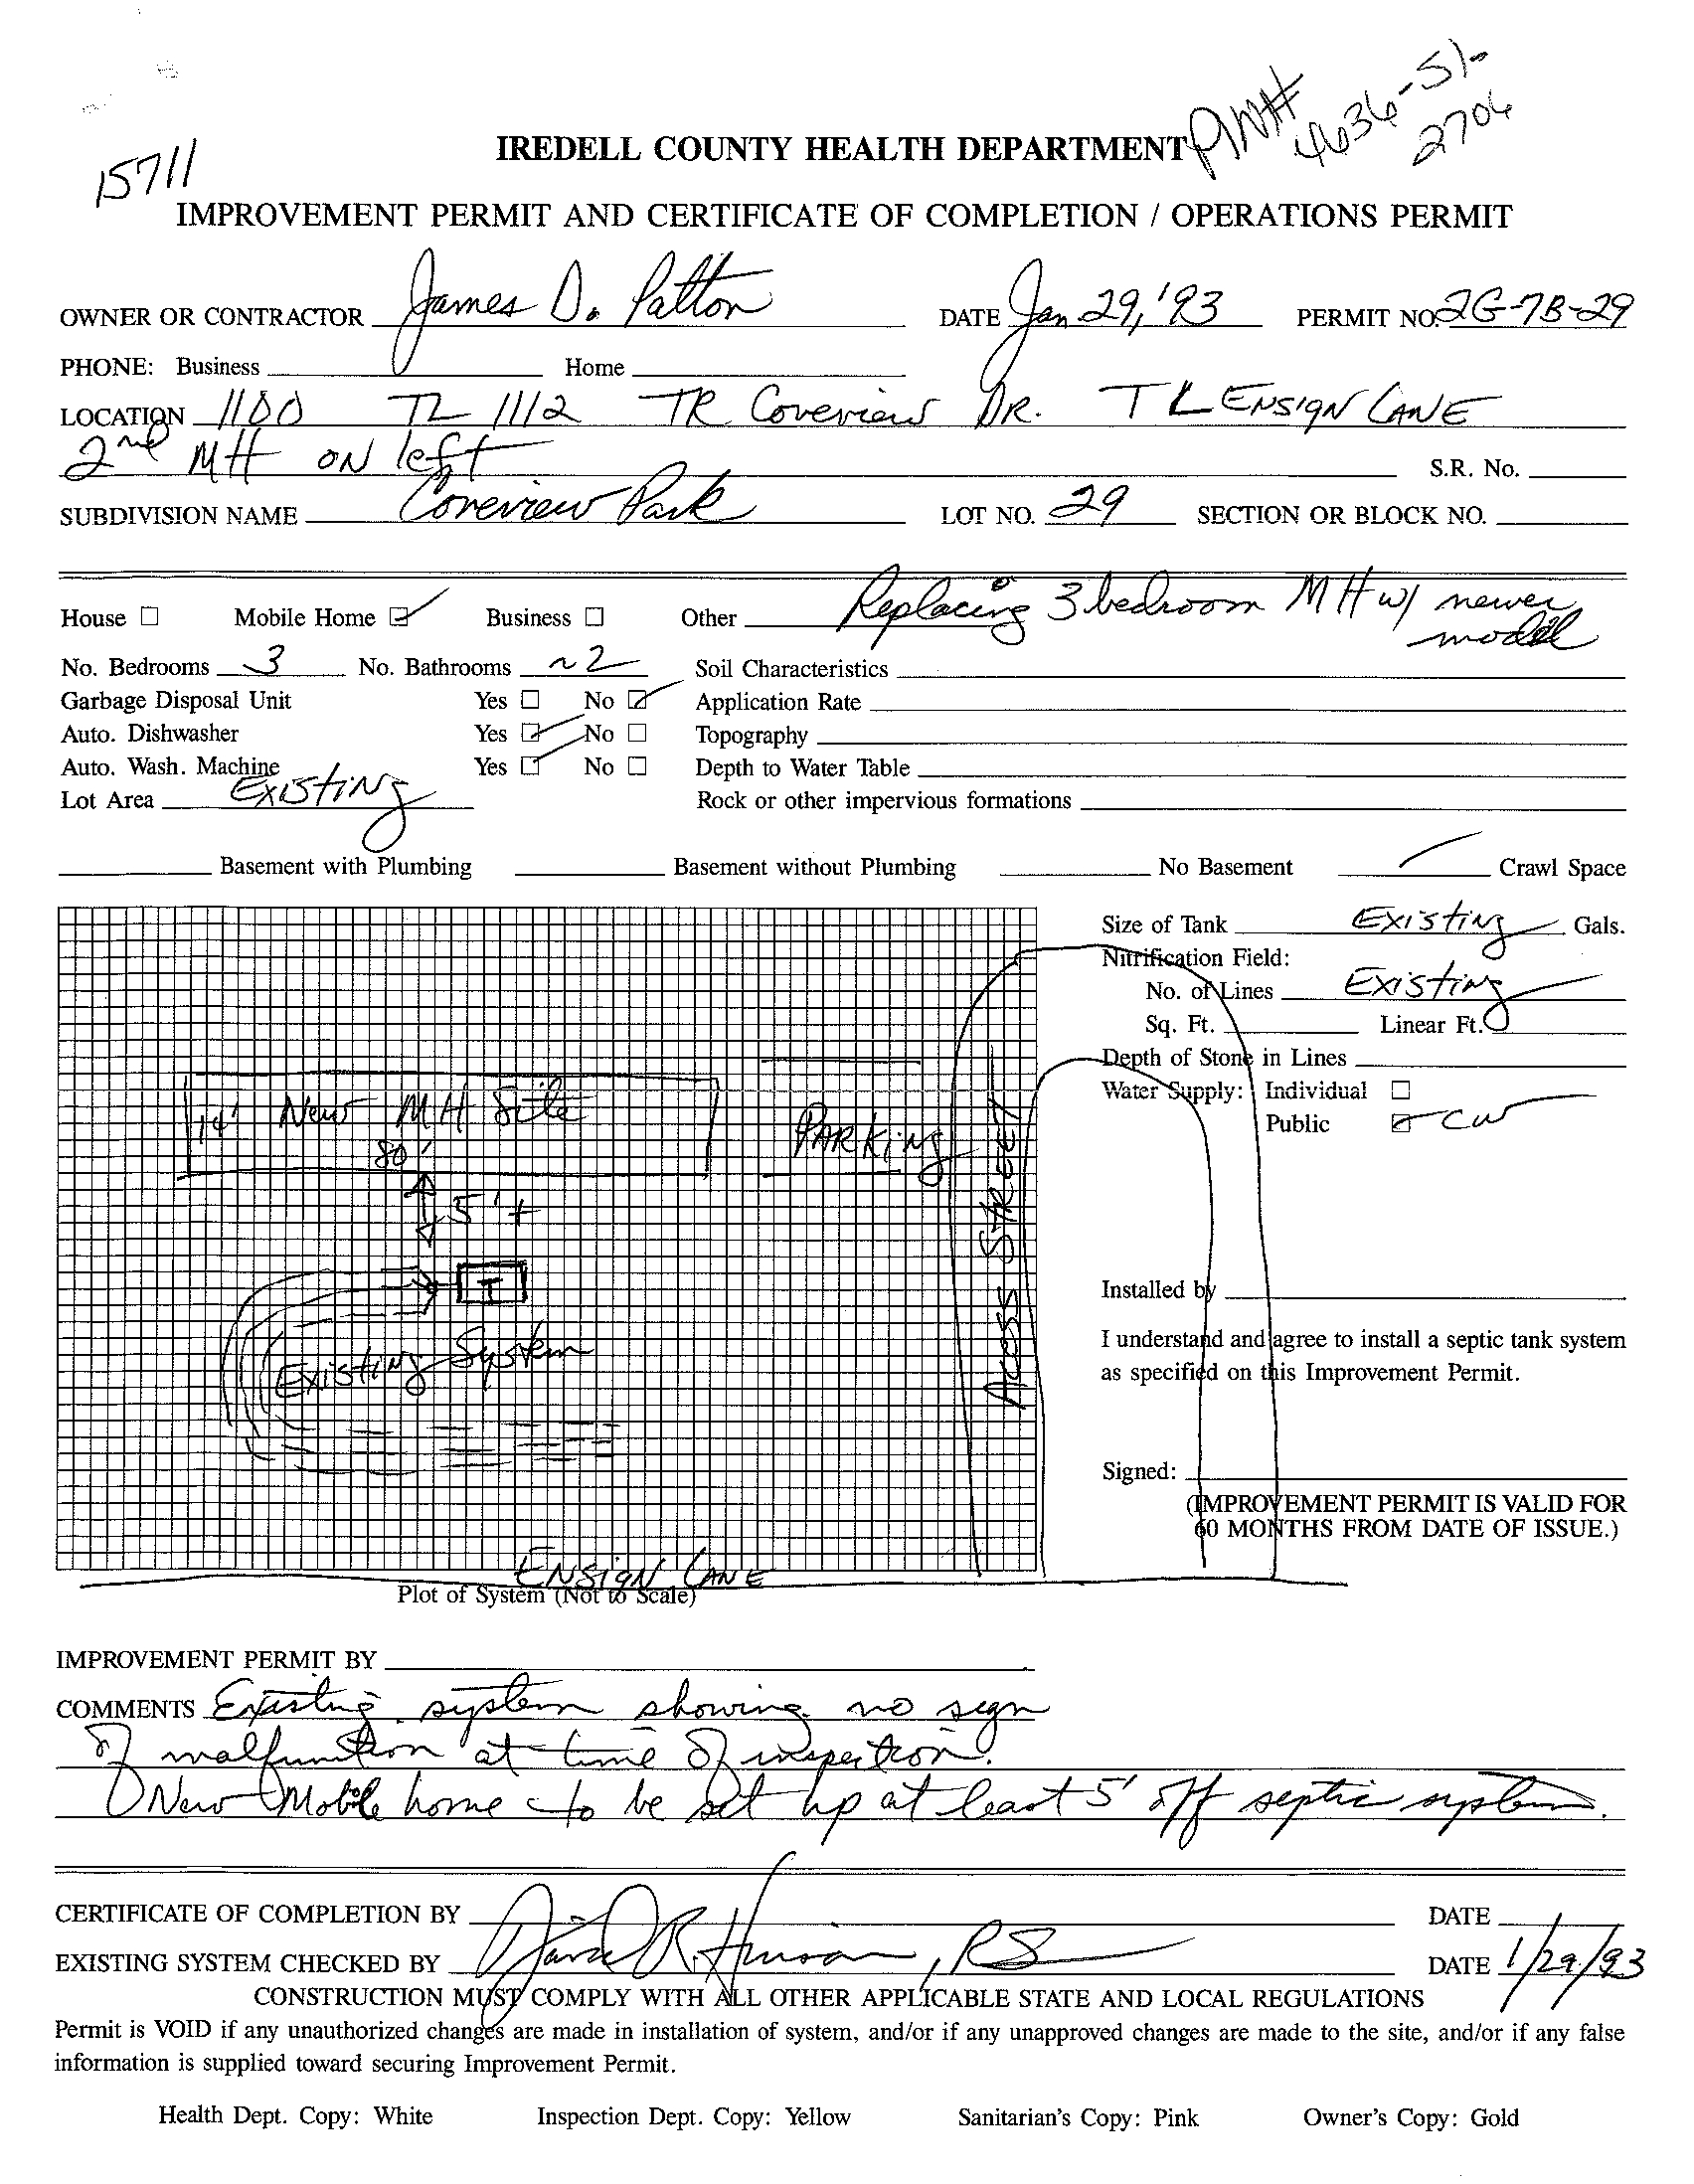 PIN# 4636-51-
2706
15711
IREDELL COUNTY HEALTH DEPARTMENT
IMPROVEMENT PERMIT AND CERTIFICATE OF COMPLETION / OPERATIONS PERMIT
OWNER OR CONTRACTOR James D. Patton DATE Jan 29, '93 PERMIT NO. 2G-7B-29
PHONE: Business Home
LOCATION 1100 TL 1112 TR Coveview DR. TL ENSIGN LANE
2nd MH ON left S.R. No.
SUBDIVISION NAME Coveview Park LOT NO. 29 SECTION OR BLOCK NO.
House ☐ Mobile Home ☑ Business ☐ Other Replacing 3 bedroom MH w/ newer
model
No. Bedrooms 3 No. Bathrooms ~2 Soil Characteristics
Garbage Disposal Unit Yes ☐ No ☑ Application Rate
Auto. Dishwasher Yes ☑ No ☐ Topography
Auto. Wash. Machine Yes ☑ No ☐ Depth to Water Table
Lot Area Existing Rock or other impervious formations
Basement with Plumbing Basement without Plumbing No Basement ✓ Crawl Space
Size of Tank Existing Gals.
Nitrification Field:
No. of Lines Existing
Sq. Ft. Linear Ft.
Depth of Stone in Lines
Water Supply: Individual ☐
Public ☑ CW
14' New MH Site
80'
PARKING
ACCESS STREET
5'+
T
Existing System
Installed by
I understand and agree to install a septic tank system
as specified on this Improvement Permit.
Signed:
(IMPROVEMENT PERMIT IS VALID FOR
60 MONTHS FROM DATE OF ISSUE.)
ENSIGN LANE
Plot of System (Not to Scale)
IMPROVEMENT PERMIT BY
COMMENTS Existing system showing no sign
of malfunction at time of inspection.
New Mobile home to be set up at least 5' off septic system.
CERTIFICATE OF COMPLETION BY DATE
EXISTING SYSTEM CHECKED BY David R. Hinson, RS DATE 1/29/93
CONSTRUCTION MUST COMPLY WITH ALL OTHER APPLICABLE STATE AND LOCAL REGULATIONS
Permit is VOID if any unauthorized changes are made in installation of system, and/or if any unapproved changes are made to the site, and/or if any false
information is supplied toward securing Improvement Permit.
Health Dept. Copy: White Inspection Dept. Copy: Yellow Sanitarian's Copy: Pink Owner's Copy: Gold